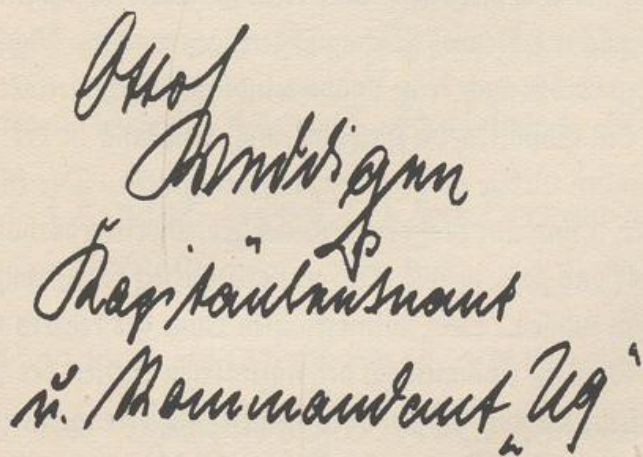 Otto
Weddigen
Kapitänleutnant
u. Kommandant „U9“